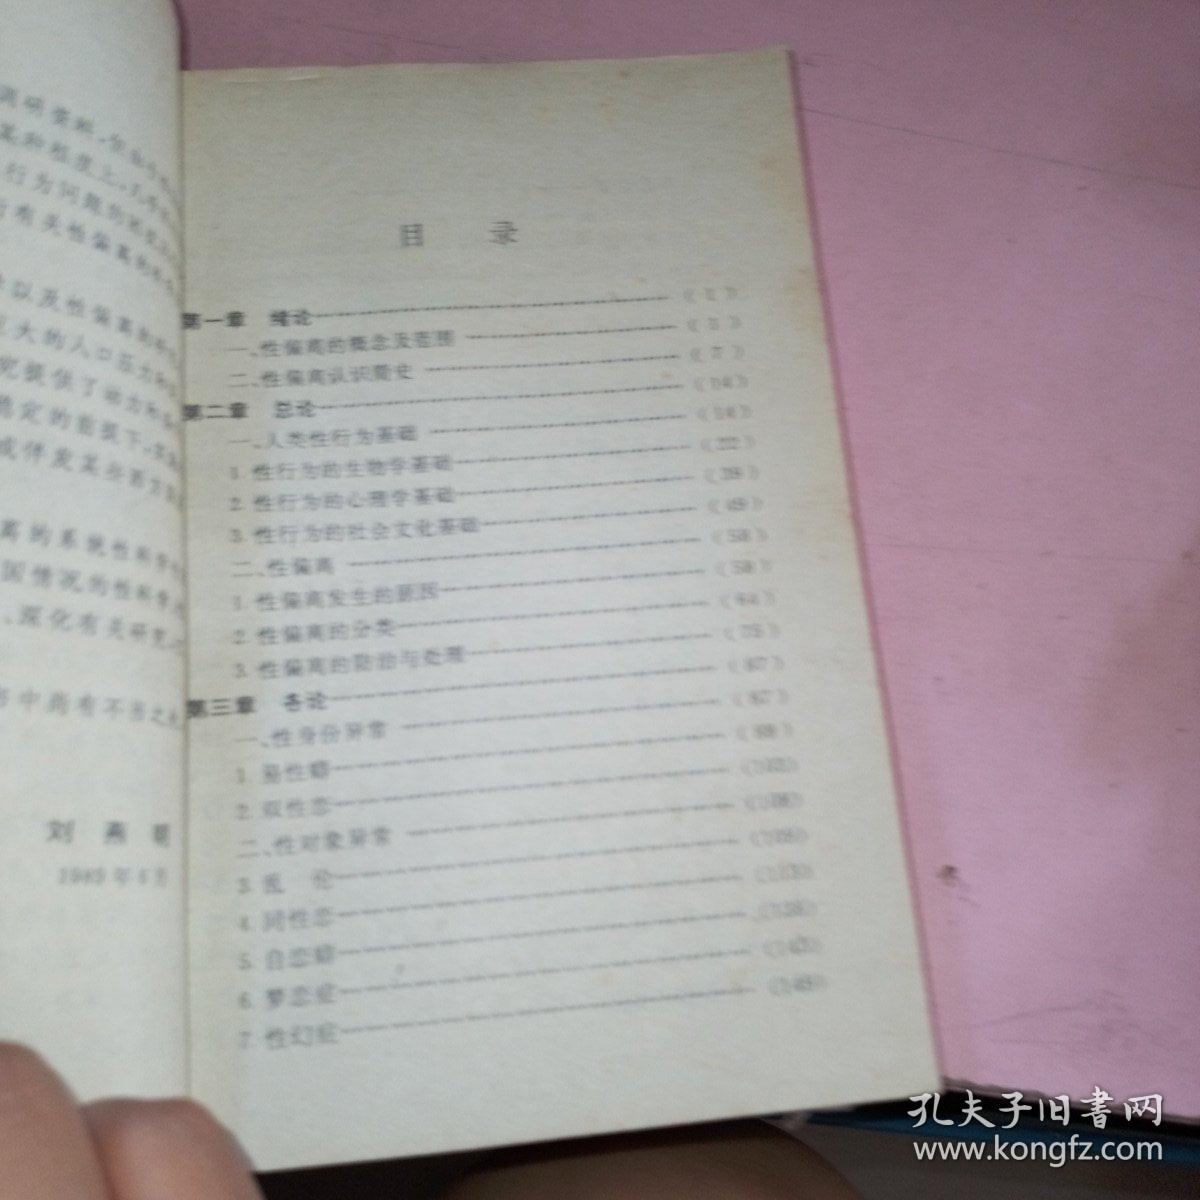 调研资料，
某种程度上，
行为问题的
有关性偏离的
以及性偏离
大的人口压力
究提供了动力和
稳定的前提下，
成伴发某些西方
离的系统性科学
国情况的性科学
、深化有关研究，
中尚有不当之处
刘燕明
1989年6月
目 录
第一章 绪论……(1)
一、性偏离的概念及范围……(1)
二、性偏离认识简史……(7)
第二章 总论……(14)
一、人类性行为基础……(14)
1.性行为的生物学基础……(22)
2.性行为的心理学基础……(39)
3.性行为的社会文化基础……(49)
二、性偏离……(58)
1.性偏离发生的原因……(58)
2.性偏离的分类……(64)
3.性偏离的防治与处理……(75)
第三章 各论……(87)
一、性身份异常……(87)
1.易性癖……(89)
2.双性恋……(102)
二、性对象异常……(108)
3.乱 伦……(108)
4.同性恋……(113)
5.自恋癖……(138)
6.梦恋症……(143)
7.性幻症……(148)
孔夫子旧書网
www.kongfz.com